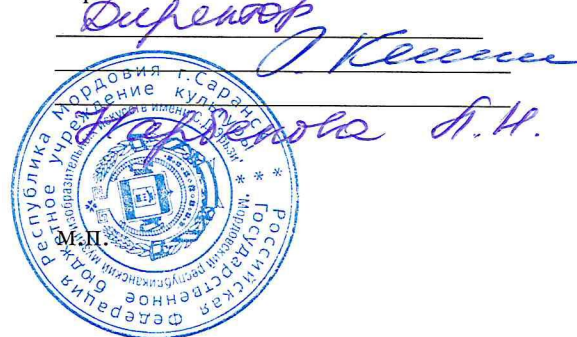 Директор
Л.Н.
М.П.
Российская Федерация Республика Мордовия г.Саранск
Государственное бюджетное учреждение культуры
"Мордовский республиканский музей изобразительных искусств имени С.Д. Эрьзи"